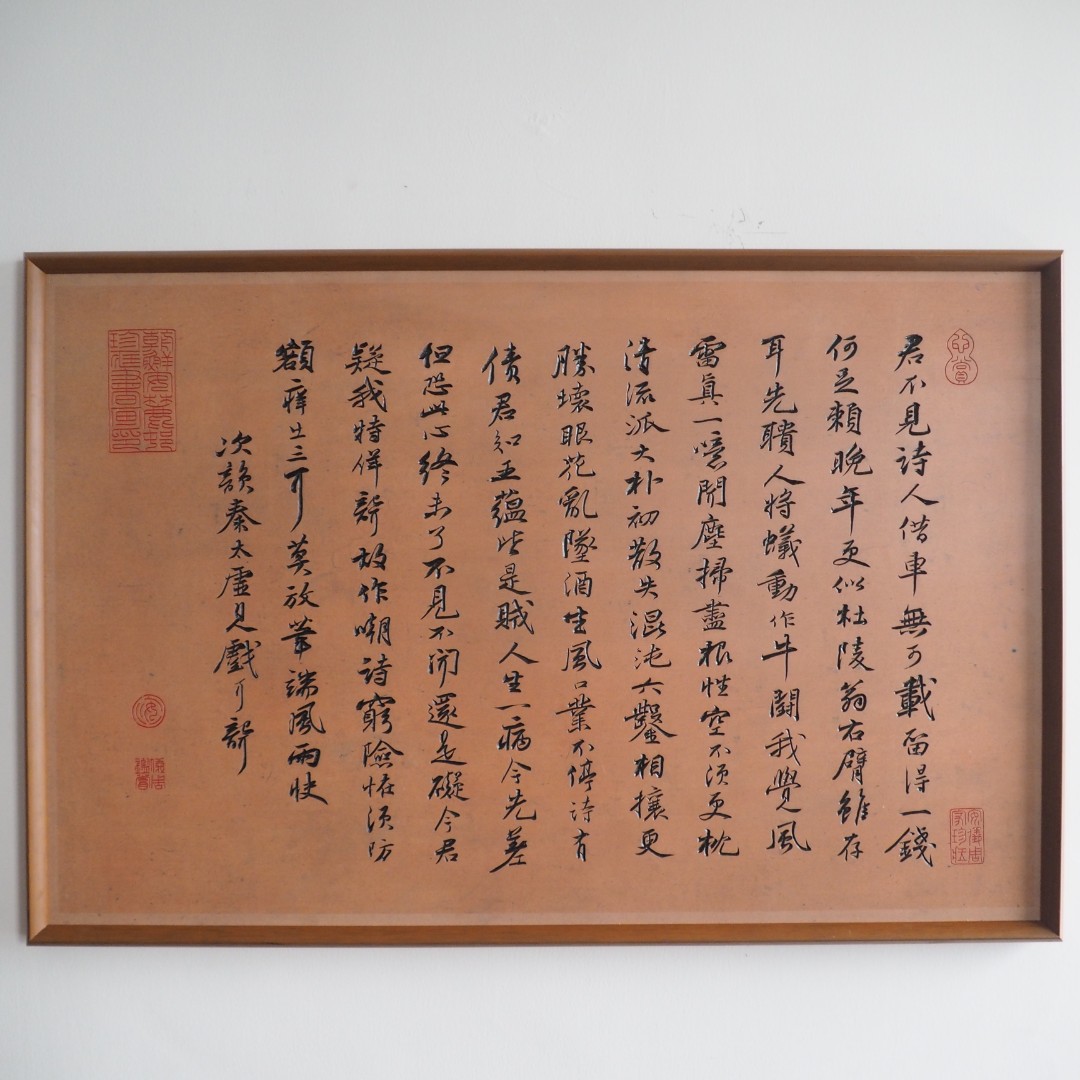 心賞
君不見詩人借車無可載留得一錢
何足賴晚年更似杜陵翁右臂雖存
耳先聵人將蟻動作牛鬪我覺風
雷真一噫聞塵掃盡根性空不須更枕
清流派大朴初散失混沌六鑿相攘更
勝壞眼花亂墜酒生風口業不停詩有
債君知五蘊皆是賊人生一病今先差
但恐此心終未了不見不聞還是礙今君
疑我特佯聾故作嘲詩窮險怪須防
額痒出三耳莫放筆端風雨快
次韻秦太虛見戲耳聾
安儀周家珍藏
朝鮮安麓邨珍藏書畫印